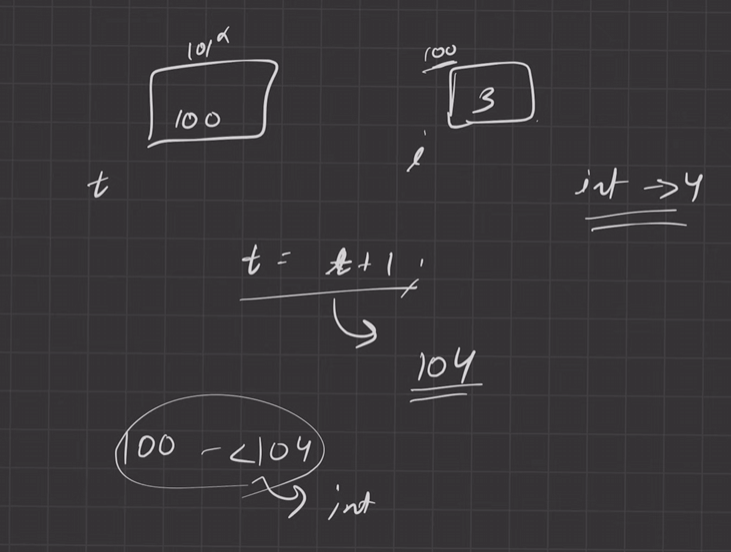 101α 100
100 3
i
t
int → 4
t = t+1;
104
100 - <104
int